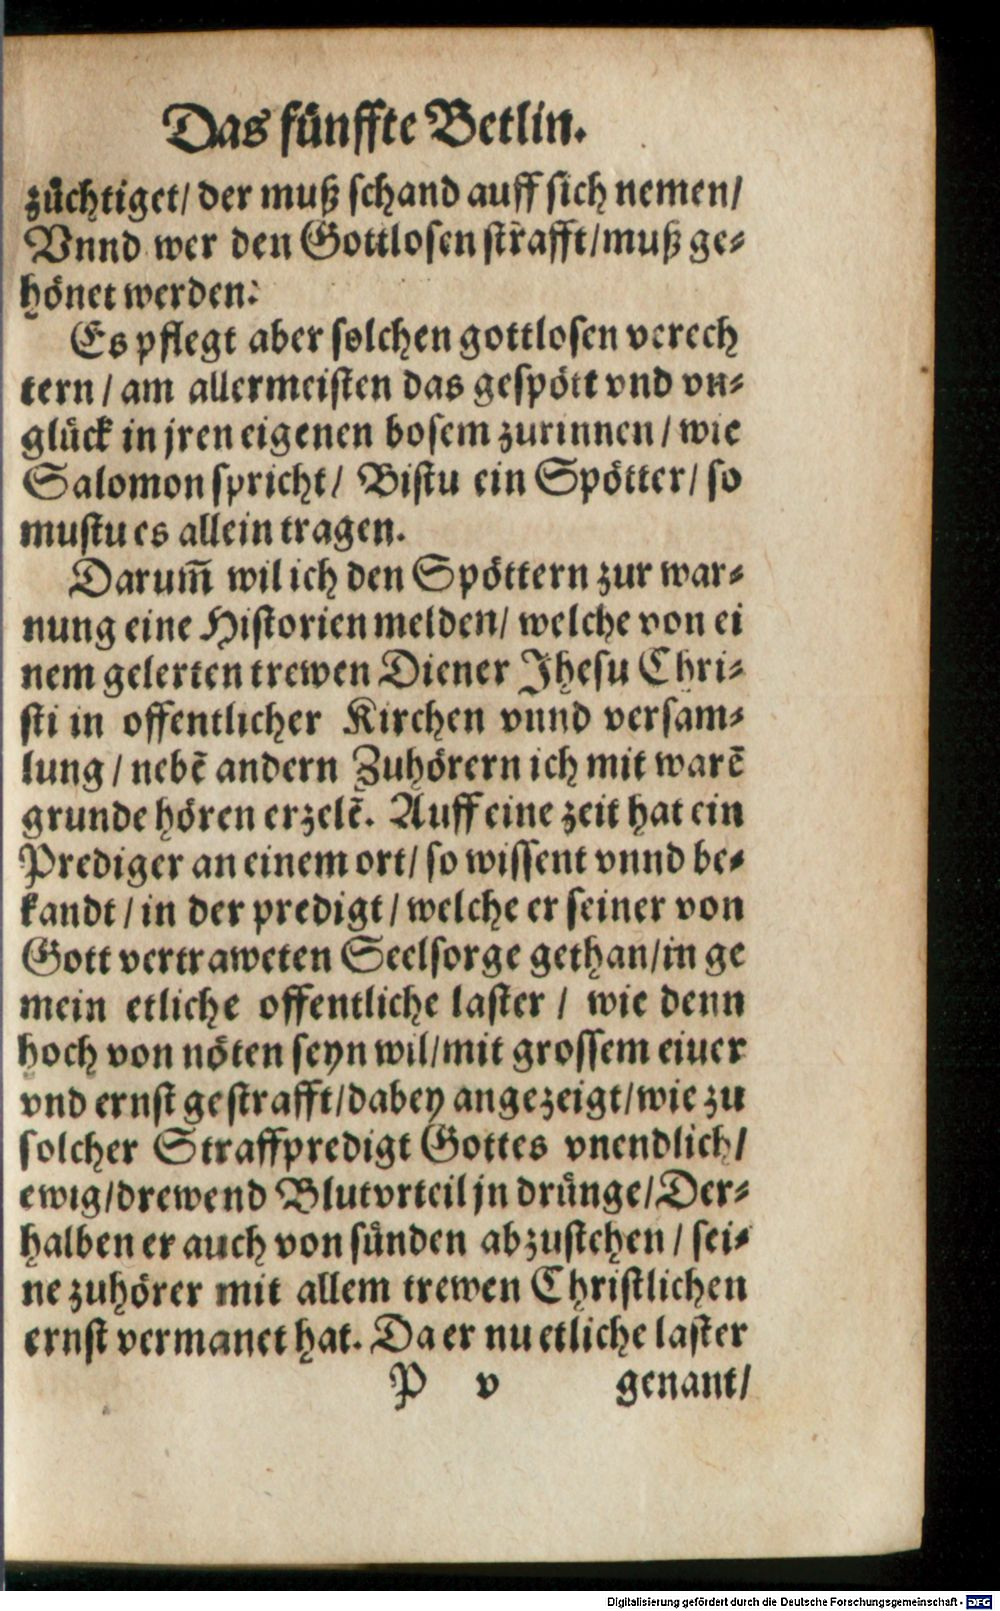 Das fünffte Betlin.
züchtiget/ der muß schand auff sich nemen/
Vnnd wer den Gottlosen strafft/muß ge-
hönet werden:
Es pflegt aber solchen gottlosen verech
tern / am allermeisten das gespött vnd vn-
glück in jren eigenen bosem zurinnen / wie
Salomon spricht/ Bistu ein Spötter/ so
mustu es allein tragen.
Darum̃ wil ich den Spöttern zur war-
nung eine Historien melden/ welche von ei
nem gelerten trewen Diener Jhesu Chri-
sti in offentlicher Kirchen vnnd versam-
lung / nebẽ andern Zuhörern ich mit warẽ
grunde hören erzelẽ. Auff eine zeit hat ein
Prediger an einem ort/ so wissent vnnd be-
kandt / in der predigt / welche er seiner von
Gott vertraweten Seelsorge gethan/in ge
mein etliche offentliche laster / wie denn
hoch von nöten seyn wil/mit grossem eiuer
vnd ernst gestrafft/dabey angezeigt/wie zu
solcher Straffpredigt Gottes vnendlich/
ewig/drewend Blutvrteil jn drünge/Der-
halben er auch von sünden abzustehen / sei-
ne zuhörer mit allem trewen Christlichen
ernst vermanet hat. Da er nu etliche laster
P v genant/
Digitalisierung gefördert durch die Deutsche Forschungsgemeinschaft - DFG